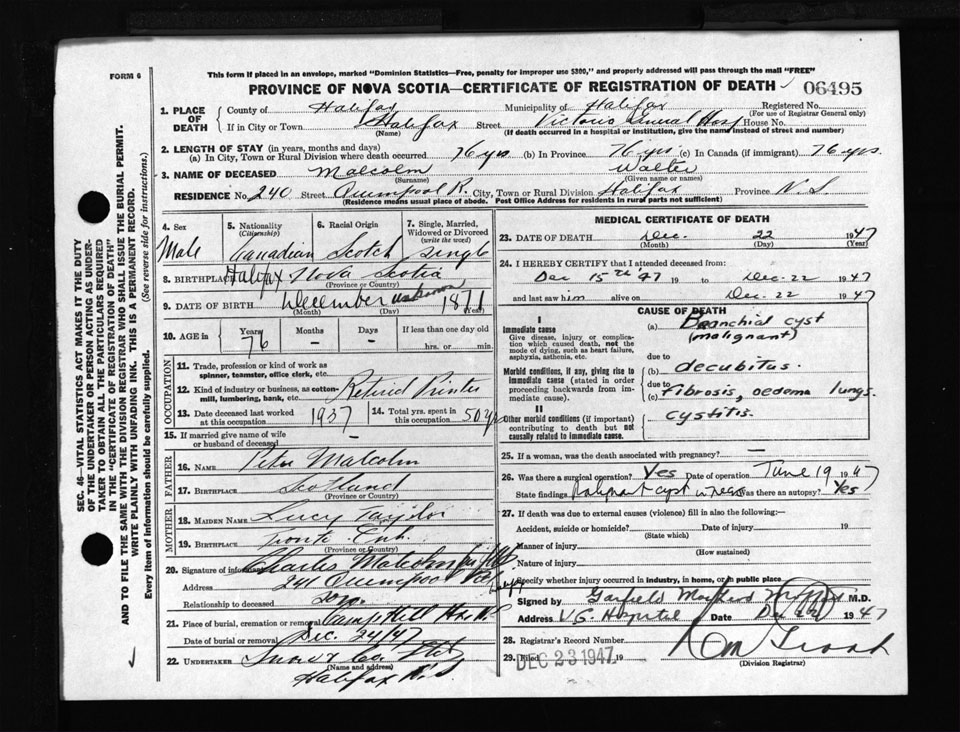 FORM 6
This form if placed in an envelope, marked "Dominion Statistics—Free, penalty for improper use $300," and properly addressed will pass through the mail "FREE"
PROVINCE OF NOVA SCOTIA—CERTIFICATE OF REGISTRATION OF DEATH 06495
SEC. 46—VITAL STATISTICS ACT MAKES IT THE DUTY
OF THE UNDERTAKER OR PERSON ACTING AS UNDER-
TAKER TO OBTAIN ALL THE PARTICULARS REQUIRED
IN THE "CERTIFICATE OF REGISTRATION OF DEATH"
AND TO FILE THE SAME WITH THE DIVISION REGISTRAR WHO SHALL ISSUE THE BURIAL PERMIT.
WRITE PLAINLY WITH UNFADING INK. THIS IS A PERMANENT RECORD.
Every item of information should be carefully supplied. (See reverse side for instructions.)
1. PLACE OF DEATH
County of Halifax Municipality of Halifax Registered No.
(For use of Registrar General only)
If in City or Town Halifax Street Victoria General Hosp House No.
(Name) (If death occurred in a hospital or institution, give the name instead of street and number)
2. LENGTH OF STAY (in years, months and days)
(a) In City, Town or Rural Division where death occurred 76 yrs (b) In Province 76 yrs. (c) In Canada (if immigrant) 76 yrs.
3. NAME OF DECEASED Malcolm Walter
(Surname) (Given name or names)
RESIDENCE No. 240 Street Quinpool R. City, Town or Rural Division Halifax Province N.S.
(Residence means usual place of abode. Post Office Address for residents in rural parts not sufficient)
4. Sex
Male
5. Nationality
(Citizenship)
Canadian
6. Racial Origin
Scotch
7. Single, Married,
Widowed or Divorced
(write the word)
Single
8. BIRTHPLACE Halifax Nova Scotia
(Province or Country)
9. DATE OF BIRTH December unknown 1871
(Month) (Day) (Year)
10. AGE in Years Months Days If less than one day old
76 – – hrs. or min.
OCCUPATION
11. Trade, profession or kind of work as
spinner, teamster, office clerk, etc.
12. Kind of industry or business, as cotton-
mill, lumbering, bank, etc.
Retired Printer
13. Date deceased last worked
at this occupation 1937
14. Total yrs. spent in
this occupation 50 yrs
15. If married give name of wife
or husband of deceased –
FATHER
16. NAME Peter Malcolm
17. BIRTHPLACE Scotland
(Province or Country)
MOTHER
18. MAIDEN NAME Lucy Taylor
19. BIRTHPLACE
(Province or Country)
20. Signature of informant Charles Malcolm
Address 241 Quinpool Halifax
Relationship to deceased
21. Place of burial, cremation or removal Camp Hill
Date of burial or removal Dec. 24/47
22. UNDERTAKER Snow & Co. Ltd
(Name and address)
Halifax N.S.
MEDICAL CERTIFICATE OF DEATH
23. DATE OF DEATH Dec. 22 1947
(Month) (Day) (Year)
24. I HEREBY CERTIFY that I attended deceased from:
Dec 15th 47 19 to Dec-22 1947
and last saw him alive on Dec-22 1947
CAUSE OF DEATH
I
Immediate cause
Give disease, injury or complica-
tion which caused death, not the
mode of dying, such as heart failure,
asphyxia, asthenia, etc.
(a) Branchial cyst
(malignant)
due to
Morbid conditions, if any, giving rise to
immediate cause (stated in order
proceeding backwards from im-
mediate cause).
(b) decubitus.
due to
(c) Fibrosis, oedema lungs.
II
Other morbid conditions (if important)
contributing to death but not
causally related to immediate cause.
cystitis.
25. If a woman, was the death associated with pregnancy? —
26. Was there a surgical operation? Yes Date of operation June 19 1947
State findings Malignant cyst in neck Was there an autopsy? Yes
27. If death was due to external causes (violence) fill in also the following:—
Accident, suicide or homicide? Date of injury 19
(State which)
Manner of injury
(How sustained)
Nature of injury
Specify whether injury occurred in industry, in home, or in public place
Signed by Garfield M.D.
Address V.G. Hospital Date Dec 22 1947
28. Registrar's Record Number
29. Filed DEC 23 1947 19
(Division Registrar)